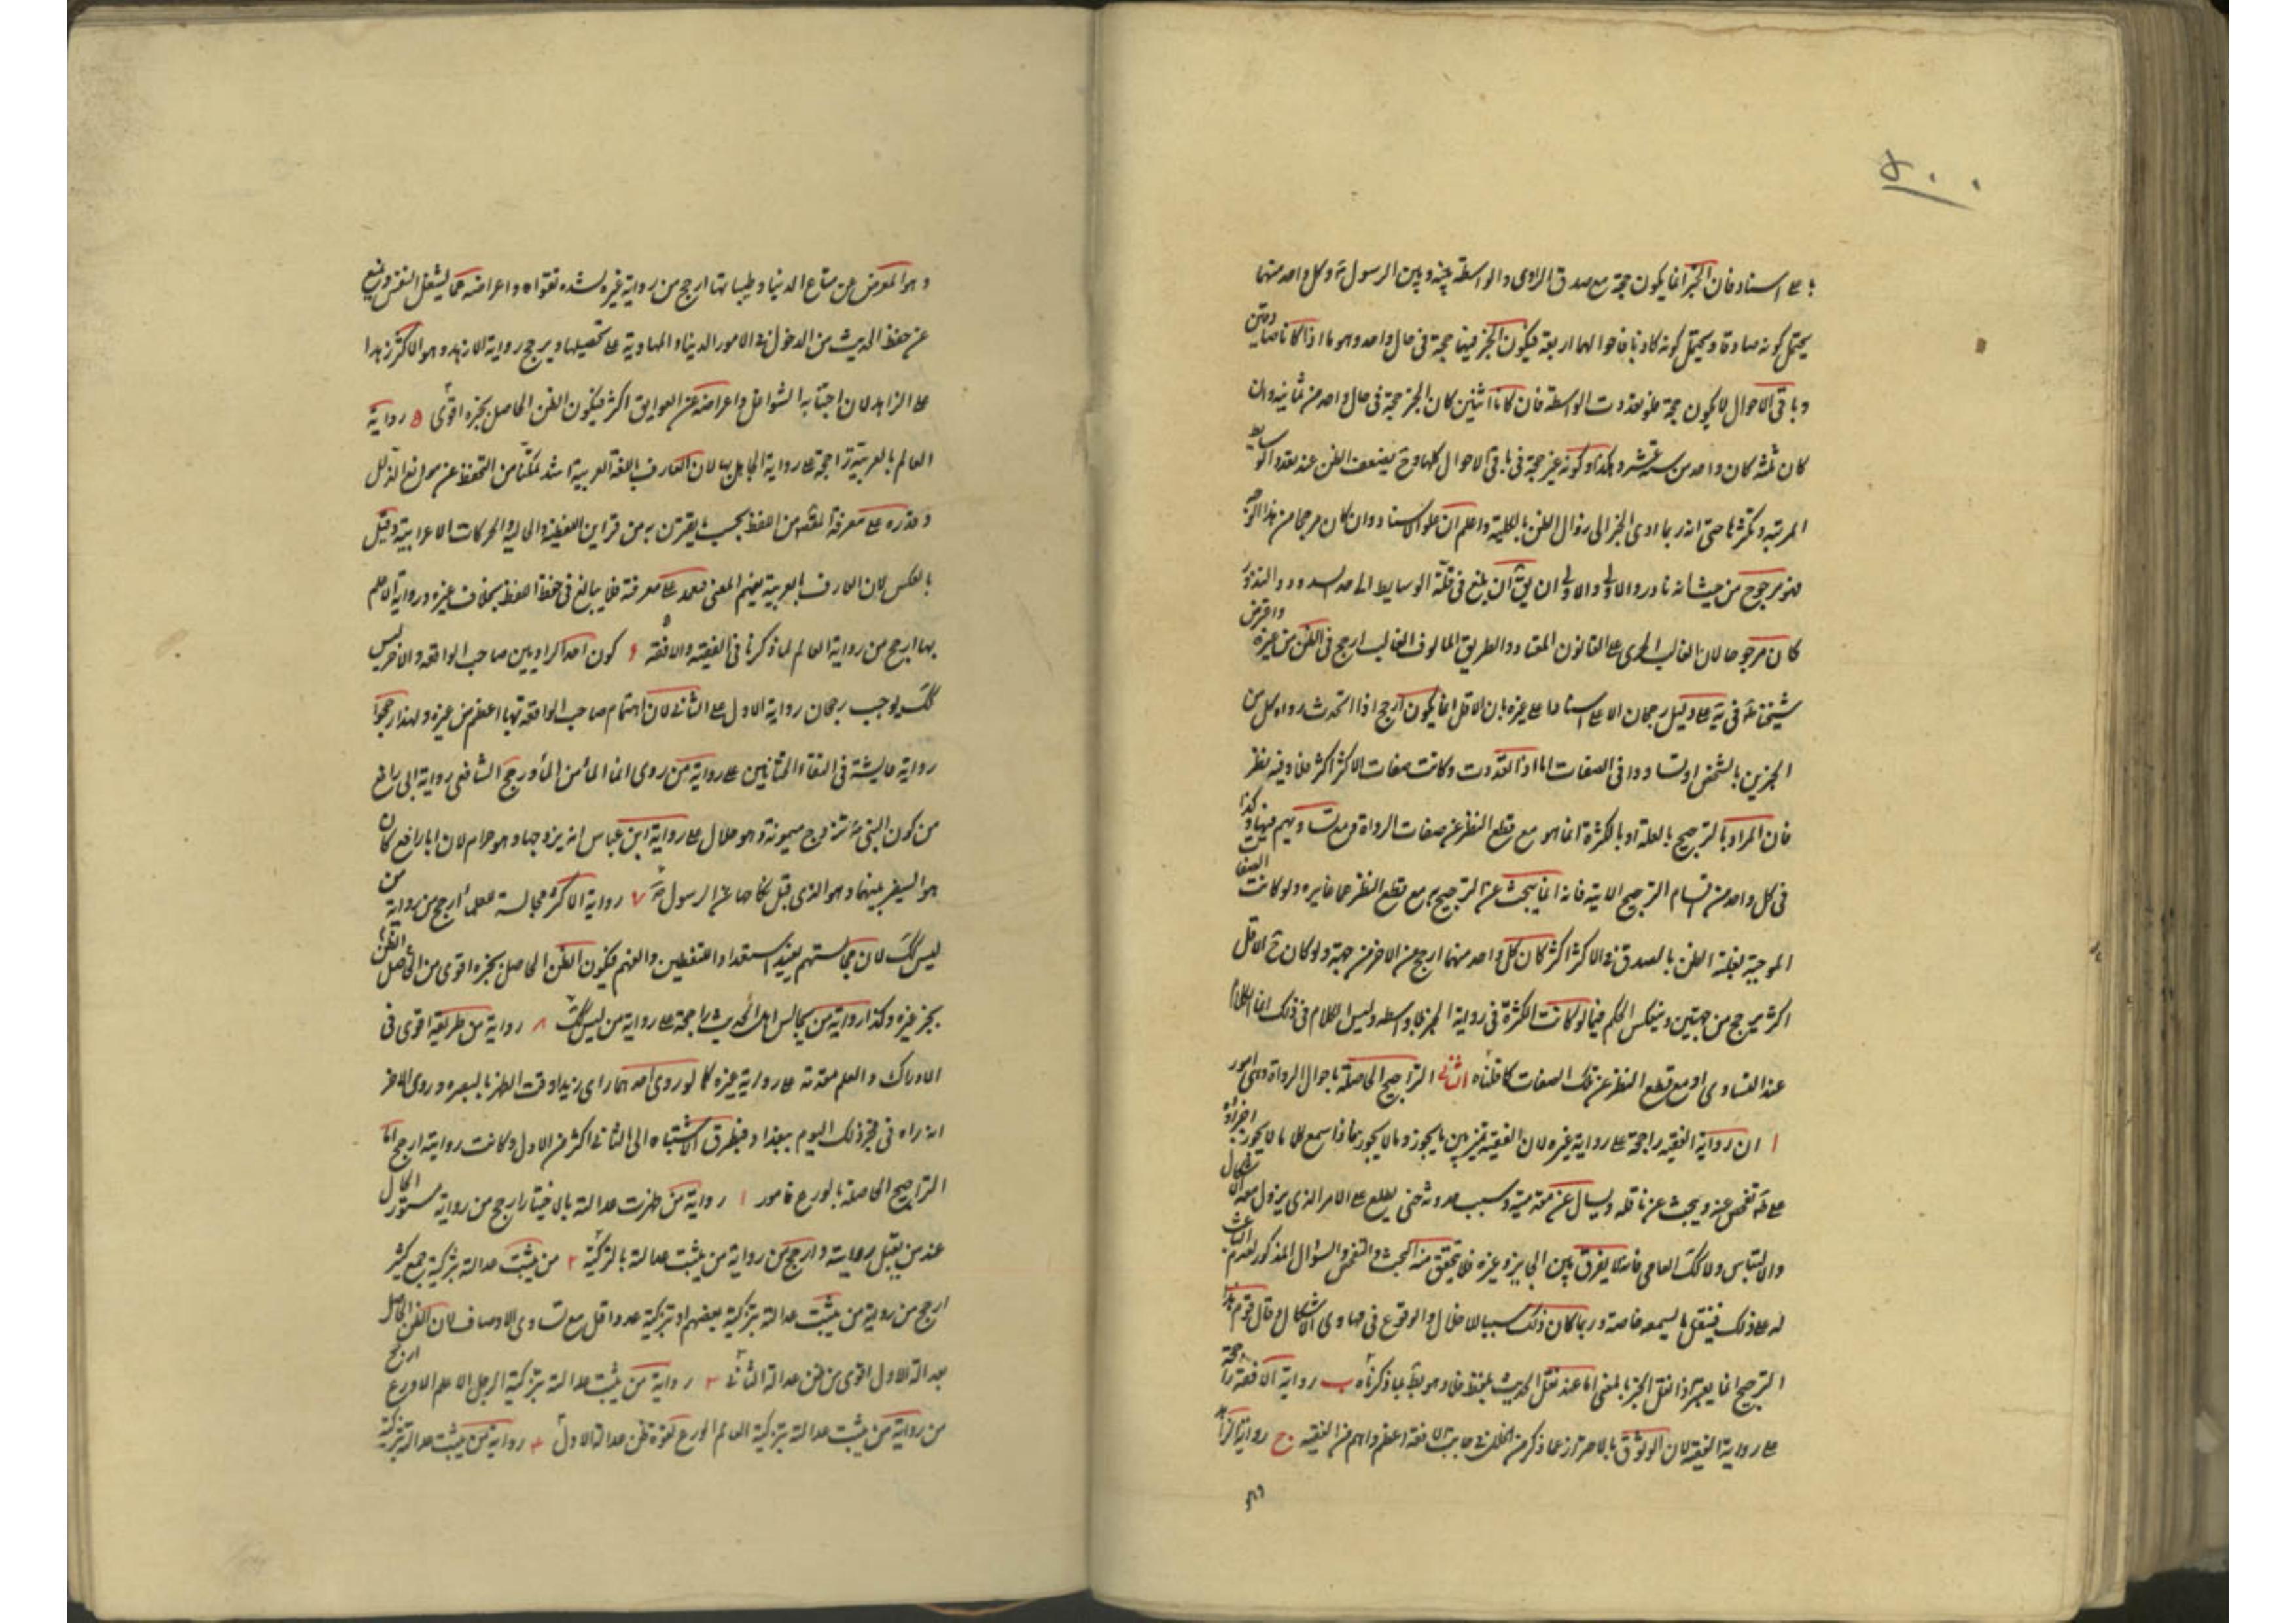 ۵۰۰
على اسناد فان الخبر انما يكون حجة مع صدق الراوى والواسطة بينه وبين الرسول ص وكل واحد منهما
يحتمل كونه صادقا ويحتمل كونه كاذبا فاحوالهما اربعة فيكون الخبر فيها حجة فى حال واحد وهو ما اذا كانا صادقين
وباقى الاحوال لا يكون حجة فلو تعددت الواسطة فان كانا اثنين كان الخبر حجة فى حال واحد من ثمانية وان
كان ثلثة كان واحد من ستة عشر وهكذا وكونه غير حجة فى باقى الاحوال كلها وح يضعف الظن عند تعدد الوسايط
المرتبة وتكثرها حتى انه ربما ادى الخبر الى زوال الظن بالكلية واعلم ان علو الاسناد وان كان مرجحا من هذا الوجه
فهو مرجوح من حيث انه نادر والاولى ان يق ان بلغ فى قلة الوسايط الى حد الندور
كان مرجوحا لان الغالب الجرى على القانون المعتاد والطريق المالوف الغالب ارجح فى الظن من غيره واعترض
شيخنا فى يه على دليل رجحان الاعلى اسنادا على غيره بان الاقل انما يكون ارجح اذا اتحدت رواة كل من
الخبرين بالشخص او تساووا فى الصفات اما اذا تعددت وكانت صفات الاكثر اكثر فلا وفيه نظر
فان المراد بالترجيح بالعلة او بالكثرة انما هو مع قطع النظر عن صفات الرواة وتساويهم فيها وكذا
فى كل واحد من اقسام الترجيح الاتية فانه انما يبحث عن الترجيح به مع قطع النظر عما غايره ولو كانت الصفات
الموجبة لغلبة الظن بالصدق فى الاكثر اكثر كان كل واحد منهما ارجح من الاخر من جهة ولو كان ح الاقل
اكثر يرجح من جهتين وينعكس الحكم فيما لو كانت الكثرة فى رواية الخبر بلا واسطة وليس الكلام فى ذلك انما الكلام
عند التساوى او مع قطع النظر عن تلك الصفات كما قلناه الثانى التراجيح الحاصلة باحوال الرواة وهى امور
ا ان رواية الفقيه راجحة على رواية غيره لان الفقيه يميز بين ما يجوز وما لا يجوز فاذا سمع كلاما لا يجوز اجراؤه
على ظه تفحص عنه ويبحث عن ناقله ويسال عن مقدمته وسبب وروده حتى يطلع على الامر الذى يزول معه الاشكال
والالتباس ولا كك العامى فانه لا يفرق بين الجايز وغيره فلا يتحقق منه البحث والتفحص والسؤال المذكور لعدم الباعث
له على ذلك فينقل ما يسمعه خاصة وربما كان ذلك سببا للاخلال والوقوع فى مهاوى الاشكال وقال قوم هذا
الترجيح انما يعتبر اذا نقل الخبر بالمعنى اما عند نقل الحديث بلفظه فلا وهو بط بما ذكرناه ب رواية الافقه راجحة
على رواية الفقيه لان الوثوق بالاحتراز عما ذكر من الخلل فى جانب الافقه اعظم واتم من الفقيه ج رواية الزاهد
وهو
وهو المعرض عن متاع الدنيا وطيباتها ارجح من رواية غيره لشدة تقواه واعراضه عما يشغل النفس ويمنع
عن حفظ الحديث من الدخول فى الامور الدنيا والمهاوية على تحصيلها ويرجح رواية الازهد وهو الاكثر زهدا
على الزاهد لان اجتنابه الشواغل واعراضه عن العوايق اكثر فيكون الظن الحاصل بخبره اقوى ۵ رواية
العالم بالعربية راجحة على رواية الجاهل بها لان العارف باللغة العربية اشد تمكنا من التحفظ عن مواقع الزلل
وقدرة على معرفة المقصد من اللفظ بحسب ما يقترن به من قراين اللفظية والحالية والحركات الاعرابية وقيل
بالعكس لان العارف بالعربية يفهم المعنى فيعتمد على معرفته فلا يبالغ فى حفظ اللفظ بخلاف غيره ورواية الاعلم
بها ارجح من رواية العالم لما ذكرنا فى الفقيه والافقه ۶ كون احد الراويين صاحب الواقعة والاخر ليس
كك يوجب رجحان رواية الاول على الثانى لان اهتمام صاحب الواقعة بها اعظم من غيره ولهذا رجحوا
رواية عايشة فى التقاء الختانين على رواية من روى انما الماء من الماء ورجح الشافعى رواية ابى رافع
من كون النبى ص تزوج ميمونة وهو حلال على رواية ابن عباس انه تزوجها وهو حرام لان ابا رافع كان
هو السفير بينهما وهو الذى قبل نكاحها عن الرسول ص ۷ رواية الاكثر مجالسة للعلماء ارجح من رواية من
ليس كك لان مجالستهم يفيد استعداد التفطين والفهم فيكون الظن الحاصل بخبره اقوى من الظن الحاصل
بخبر غيره وكذا رواية من يجالس اهل الحديث راجحة على رواية من ليس كك ۸ رواية من طريقه اقوى فى
الادراك والعلم مقدمة على رواية غيره كما لو روى احدهما راى زيدا وقت الظهر بالبصرة وروى الاخر
انه راه فى فجر ذلك اليوم ببغداد فتطرق الاشتباه الى الثانى اكثر من الاول وكانت روايته ارجح اما
التراجيح الحاصلة بالورع فامور ا رواية من ظهرت عدالته بالاختبار ارجح من رواية مستور الحال
عند من يقبل روايته وارجح من رواية من يثبت عدالته بالتزكية ۲ من يثبت عدالته بتزكية جمع كثير
ارجح من رواية من يثبت عدالته بتزكية بعضهم او تزكية عدد اقل مع تساوى الاوصاف لان الظن الحاصل
بعدالة الاول اقوى من ظن عدالة الثانى ۳ رواية من يثبت عدالته بتزكية الرجل الاعلم الاورع ارجح
من رواية من يثبت عدالته بتزكية العالم الورع لقوة ظن عدالة الاول ۴ رواية من يثبت عدالته بتزكية